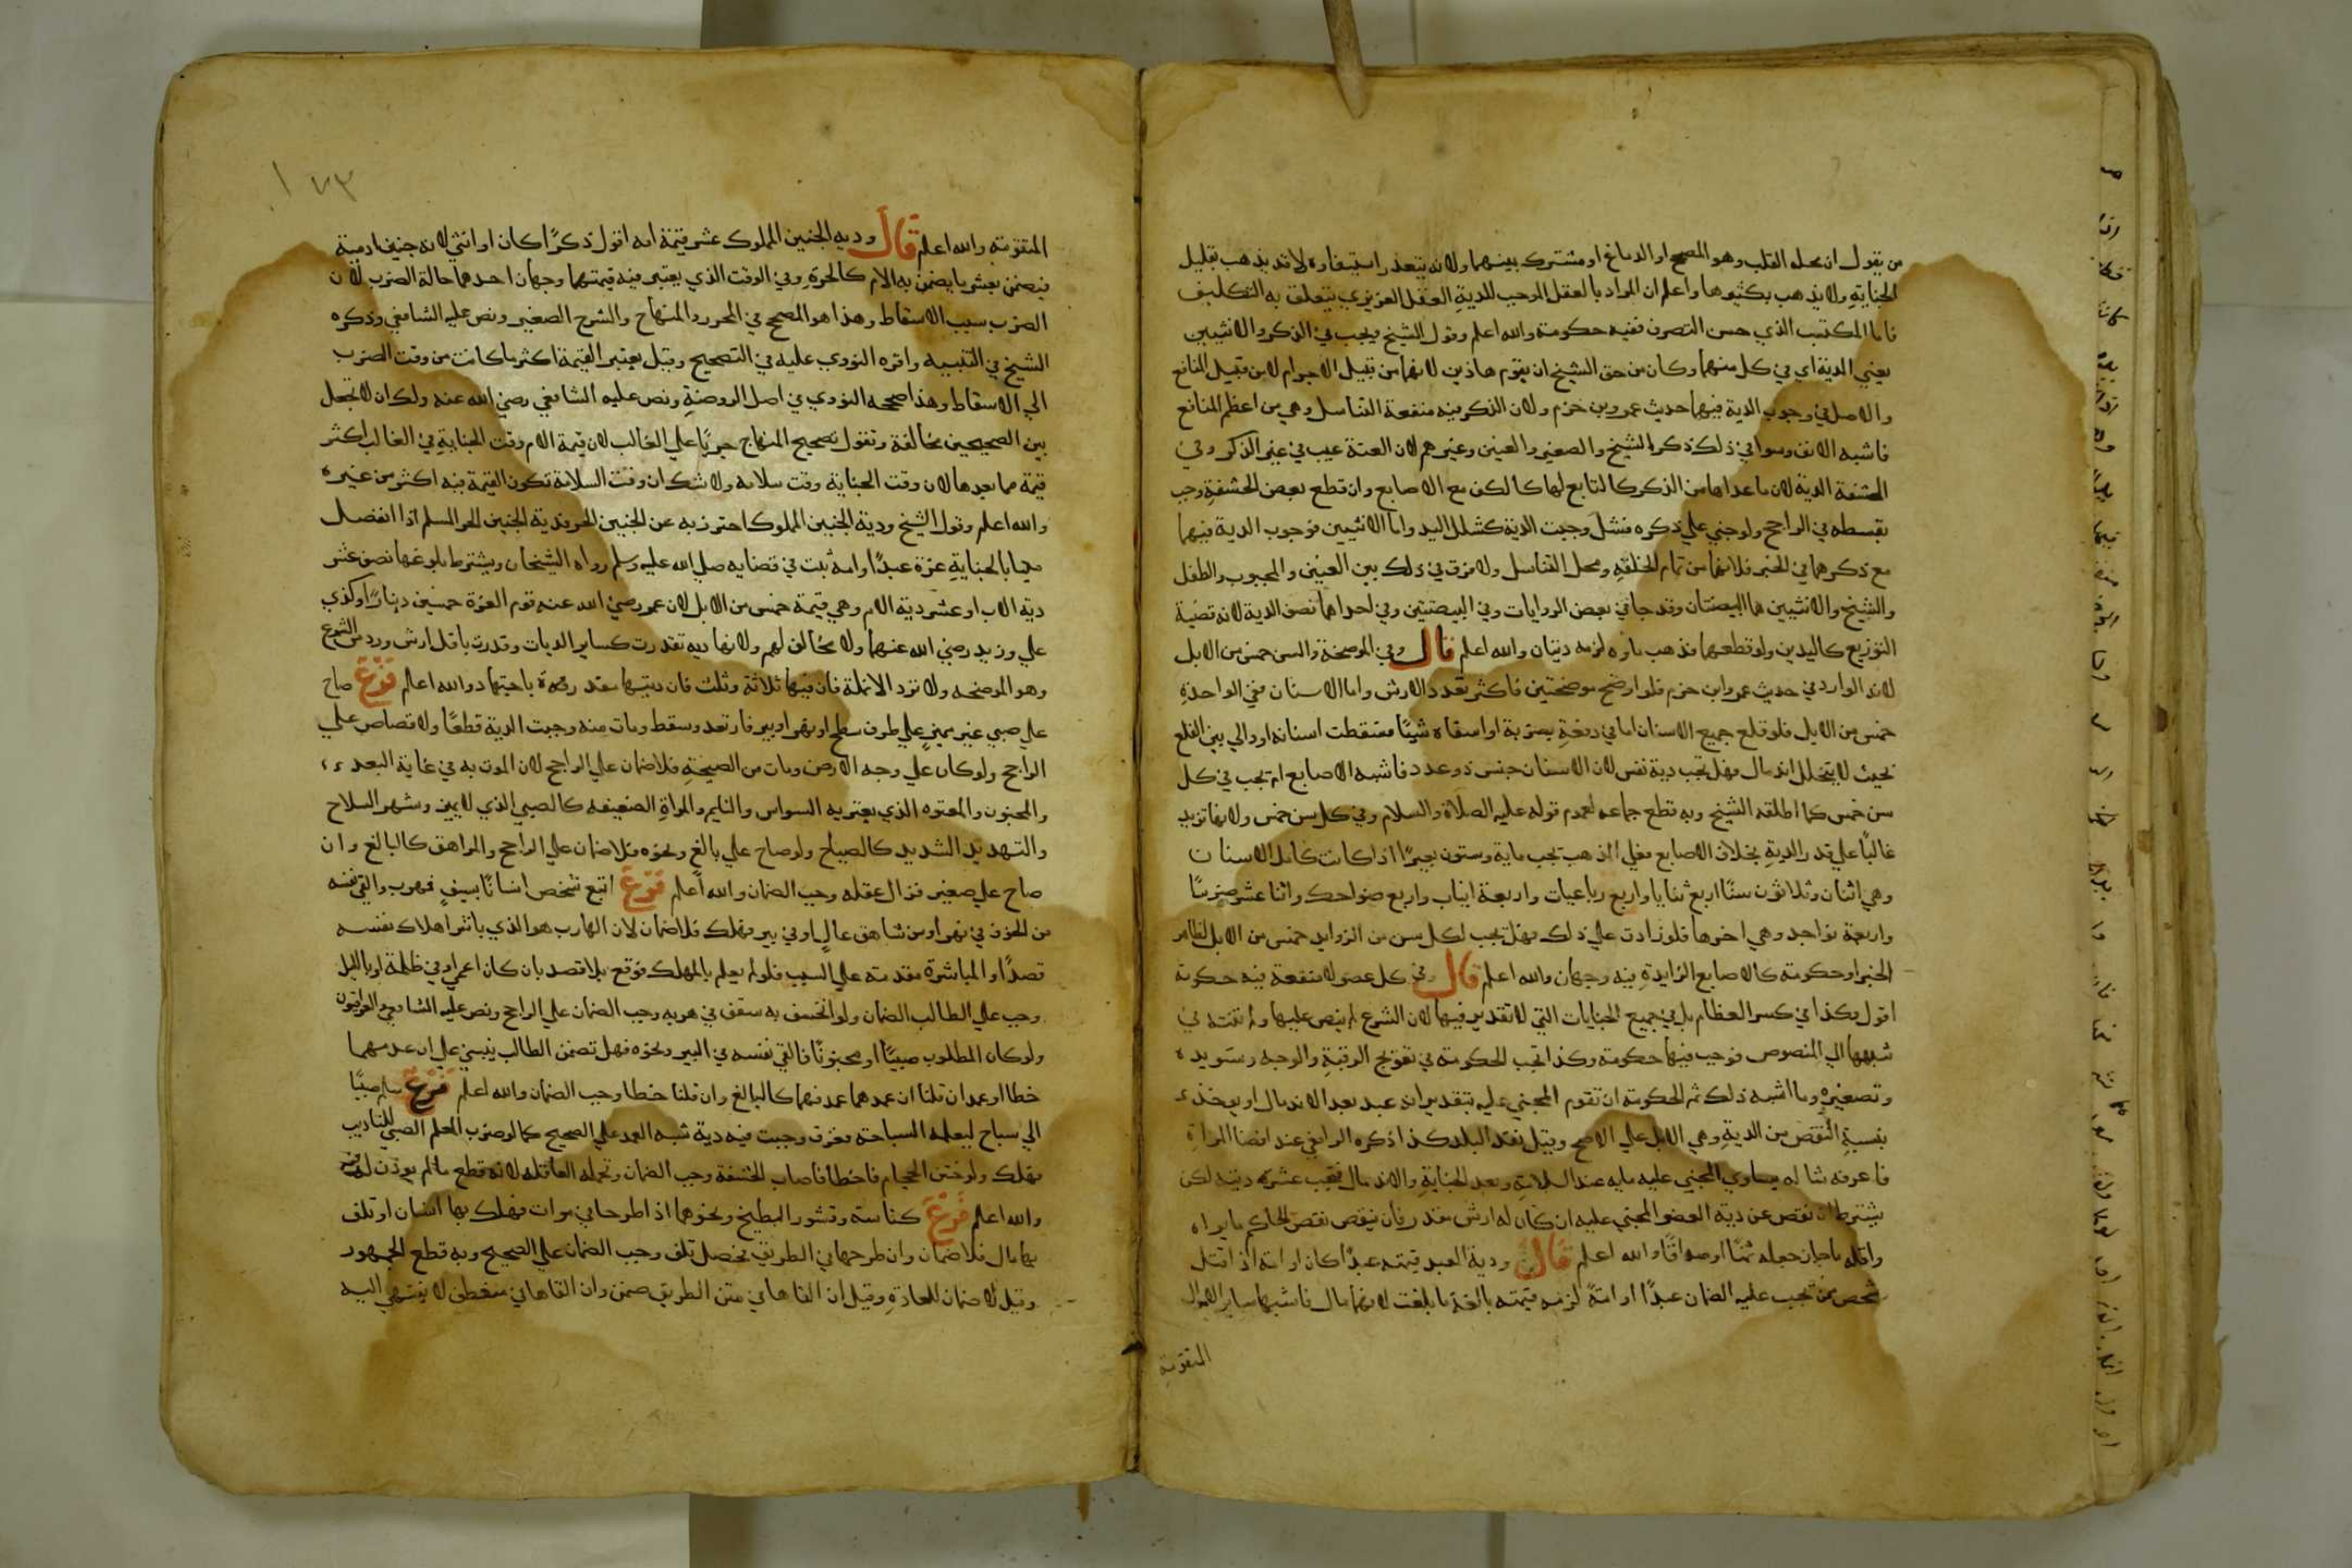 من يقول ان محله القلب وهو المصحح او الدماغ او مشترك بينهما ولانه يتعذر استيفاوه لا قد يذهب بقليل
الجناية ولا يذهب بكثيرها واعلم ان المراد بالعقل الموجب للدية العقل الغريزي يتعلق به التكليف
فاما المكتسب الذي حسن التصرف ففيه حكومته والله اعلم وقول الشيخ ويجب في الذكر والانثيين
يعني الدية اي في كل منهما وكان من حق الشيخ ان يقوم هاذين لانهما من قبيل الاجرام لا من قبيل المنافع
والاصل في وجوب الدية فيهما حديث عمرو بن حزم ولان الذكر فيه منفعة التناسل وهي من اعظم المنافع
فاشبه الانف وسوا في ذلك ذكر الشيخ والصغير والعنين وغيرهم لان العنة عيب في غير الذكر وفي
الحشفة الدية لان ما عداها من الذكر كالتابع لها كالكف مع الاصابع وان قطع بعض الحشفة وجب
بقسطه في الراجح ولو جني علي ذكره فشل وجبت الدية كشلل اليد واما الانثيين فوجوب الدية فيهما
مع ذكرهما في الخبر فلانهما من تمام الخلقة ومحل التناسل ولا فرق في ذلك بين العنين والمجبوب والطفل
والشيخ والانثيين هما البيضتان وقد جا في بعض الروايات وفي البيضتين وفي احداهما نصف الدية لانه قضية
التوزيع كاليدين ولو قطعهما فذهب ماوه لزمه ديتان والله اعلم قال وفي الموضحة والسن خمس من الابل
لانه الوارد في حديث عمرو ابن حزم فلو اوضح موضحتين فاكثر تعدد الارش واما الاسنان ففي الواحدة
خمس من الابل فلو قلع جميع الاسنان اما في دفعة بضربة او اسقاه شيئا فسقطت اسنانه او والي بين القلع
بحيث لا يتخلل اندمال فهل تجب دية نفس لان الاسنان جنس ذو عدد فاشبه الاصابع ام تجب في كل
سن خمس كما اطلقه الشيخ وبه قطع جماعه لعموم قوله عليه الصلاة والسلام وفي كل سن خمس ولانها تزيد
غالبا علي قدر الدية بخلاف الاصابع فعلي المذهب تجب ماية وستون بعيرا اذا كانت كامل الاسنان
وهي اثنان وثلاثون سنا اربع ثنايا واربع رباعيات واربعة انياب واربع ضواحك واثنا عشر ضرسا
واربعة نواجد وهي اخرها فلو زادت علي ذلك فهل يجب لكل سن من الزوايد خمس من الابل لظاهر
الخبر او حكومته كالاصابع الزايدة فيه وجهان والله اعلم قال وفي كل عضو لا منفعة فيه حكومة
اقول هكذا في كسر العظام بل في جميع الجنايات التي لا تقدير فيها لان الشرع لم ينص عليها ولم تنته في
شبهها الي المنصوص فوجب فيها حكومته وكذا تجب الحكومته في تعويج الرقبة والوجه وتسويده
وتصغيره وما اشبه ذلك ثم الحكومته ان تقوم المجني عليه بتقدير انه عبد بعد الاندمال او يوخذ
بنسبة النقص من الدية وهي الابل علي الاصح وقيل بنقد البلد كذا ذكره الرافعي عند افضا المراة
فاعرفه مثاله يساوي المجني عليه مايه عند السلامة وبعد الجناية والاندمال فيجب عشر ديته لكن
يشترط ان نقص عن دية العضو المجني عليه ان كان له ارش مقدر فان ينقص نقص الحاكم ما يراه
واقله ما جاز جعله ثمنا او صداقا والله اعلم قال ودية العبد قيمته عبدا كان او امة اذا قتل
شخص ممن تجب عليه الضمان عبدا او امة لزمه قيمته بالغة ما بلغت لانهما مال فاشبها ساير الاموال
المتقومة
١٧٣
المتقومة والله اعلم قال وديه الجنين المملوك عشر قيمة امه اقول ذكرا كان او انثي لانه جنين ادمية
فيضمن بعشر ما يضمن به الام كالحرة وفي الوقت الذي يعتبر فيه قيمتهما وجهان احدهما حالة الضرب لان
الضرب سبب الاسقاط وهذا هو المصحح في المحرر والمنهاج والشرح الصغير ونص عليه الشافعي وذكره
الشيخ في التنبيه واقره النووي عليه في التصحيح وقيل يعتبر القيمة اكثر ما كانت من وقت الضرب
الي الاسقاط وهذا صححه النووي في اصل الروضة ونص عليه الشافعي رضي الله عنه ولك ان لا تجعل
بين الصحيحين مخالفة وتقول تصحيح المنهاج جريا علي الغالب لان قيمة الام وقت الجناية في الغالب اكثر
قيمة مما بعدها لان وقت الجناية وقت سلامه ولا شك ان وقت السلامة تكون القيمة فيه اكثر من غيره
والله اعلم وقول الشيخ ودية الجنين المملوك احترز به عن الجنين الحر فدية الجنين الحر المسلم اذا انفصل
ميتا بالجناية غرة عبدا او امة ثبت في قضايه صلي الله عليه وسلم رواه الشيخان ويشترط بلوغها نصف عشر
دية الاب او عشر دية الام وهي قيمة خمس من الابل لان عمر رضي الله عنه قوم الغرة خمسين دينارا وكذي
علي وزيد رضي الله عنهما ولا مخالف لهم ولانها ديه تقدرت كساير الديات وقدرت باقل ارش ورد من الشرع
وهو الموضحه ولا ترد الانملة فان فيها ثلاثة وثلث فان ديتها باجتهاد والله اعلم فرع صاح
علي صبي غير مميز علي طرف سطح او نهر او بير فارتعد وسقط ومات منه وجبت الدية قطعا ولا قصاص علي
الراجح ولو كان علي وجه الارض ومات من الصيحة فلا ضمان علي الراجح لان الموت به في غاية البعد
والمجنون والمعتوه الذي يعتريه السواس والنايم والمراة الضعيفه كالصبي الذي لا يميز وشهر السلاح
والتهديد الشديد كالصياح ولو صاح علي بالغ ونحوه فلا ضمان علي الراجح والمراهق كالبالغ وان
صاح علي صغير فزال عقله وجب الضمان والله اعلم فرع اتبع شخص انسانا بسيف فهرب والقي نفسه
من الخوف في نهر او من شاهق عال او في بير فهلك فلا ضمان لان الهارب هو الذي باشر اهلاك نفسه
قصدا والمباشرة مقدمة علي السبب فلو لم يعلم بالمهلك فوقع بلا قصد بان كان اعمي او في ظلمة او بالليل
وجب علي الطالب الضمان ولو انخسف به سقف في هربه وجب الضمان علي الراجح ونص عليه الشافعي والعراقيون
ولو كان المطلوب صبيا او مجنونا فالقي نفسه في البير ونحوه فهل تضمن الطالب يبني علي ان عمدهما
خطا او عمد ان قلنا ان عمدهما عمد فهما كالبالغ وان قلنا خطا وجب الضمان والله اعلم فرع سلم صبيا
الي سباح ليعلمه السباحته فغرق وجبت فيه دية شبه العمد علي الصحيح كما لو ضرب المعلم الصبي للتاديب
فهلك ولو ختن الحجام فاخطا فاصاب الحشفة وجب الضمان وتحمله العاقله لانه قطع ما لم يوذن له فيه
والله اعلم فرع كناسته وقشور البطيخ ونحوهما اذا طرحا في موات فهلك بها انسان او تلف
بها مال فلا ضمان وان طرحها في الطريق فحصل تلف وجب الضمان علي الصحيح وبه قطع الجمهور
وقيل لا ضمان للعادة وقيل ان القاها في متن الطريق ضمن وان القاها في منعطف لا ينتهي اليه